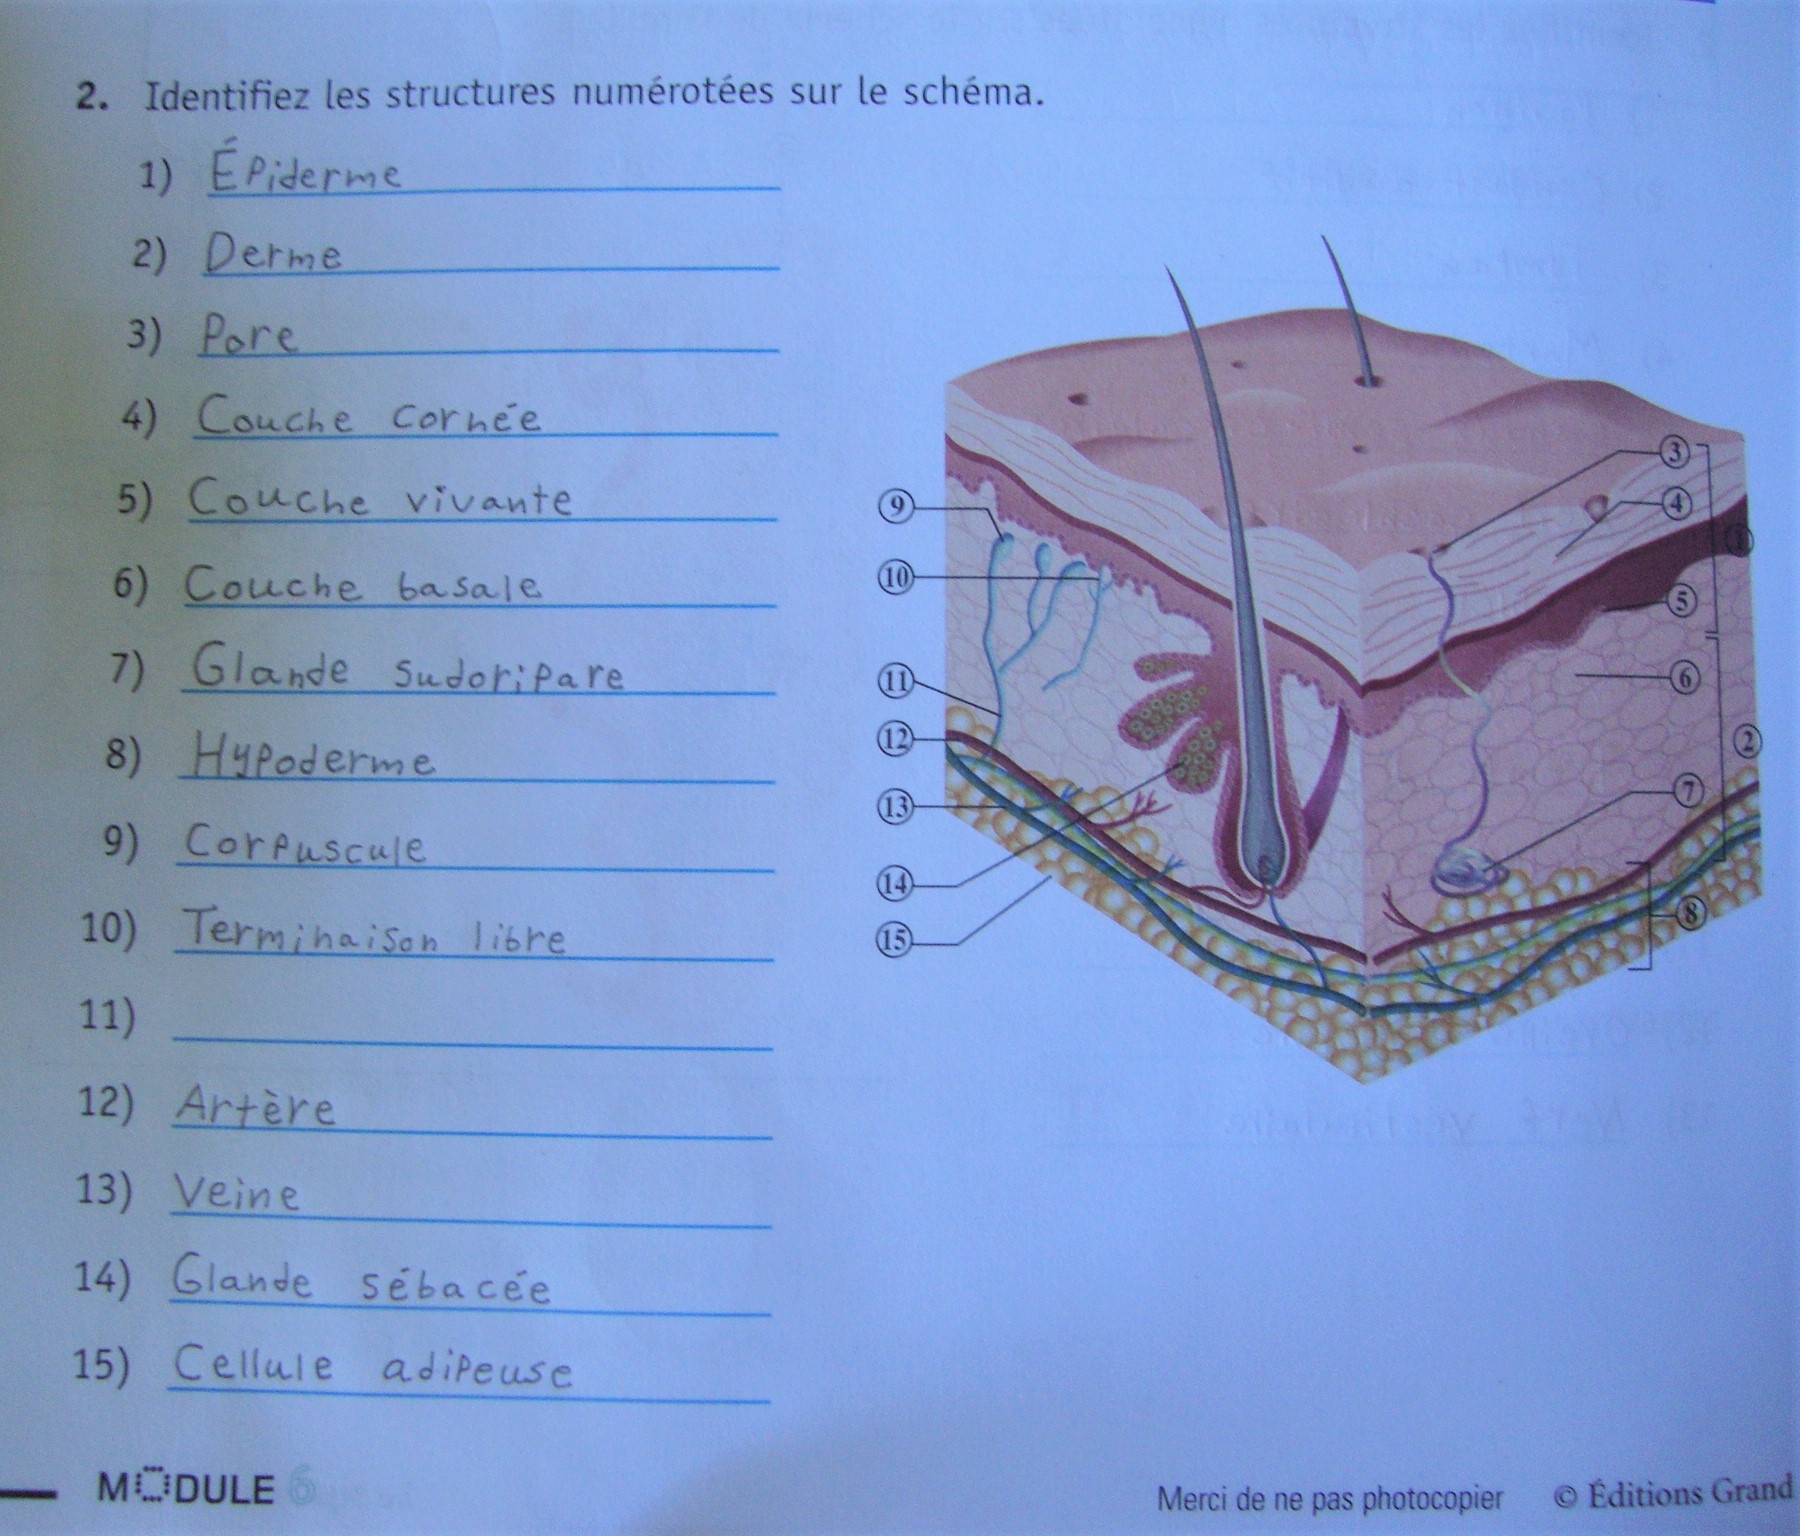 2. Identifiez les structures numérotées sur le schéma.
1) Épiderme
2) Derme
3) Pore
4) Couche cornée
5) Couche vivante
6) Couche basale
7) Glande sudoripare
8) Hypoderme
9) Corpuscule
10) Terminaison libre
11)
12) Artère
13) Veine
14) Glande sébacée
15) Cellule adipeuse
3
4
1
5
6
2
7
8
9
10
11
12
13
14
15
MODULE 6
Merci de ne pas photocopier © Éditions Grand